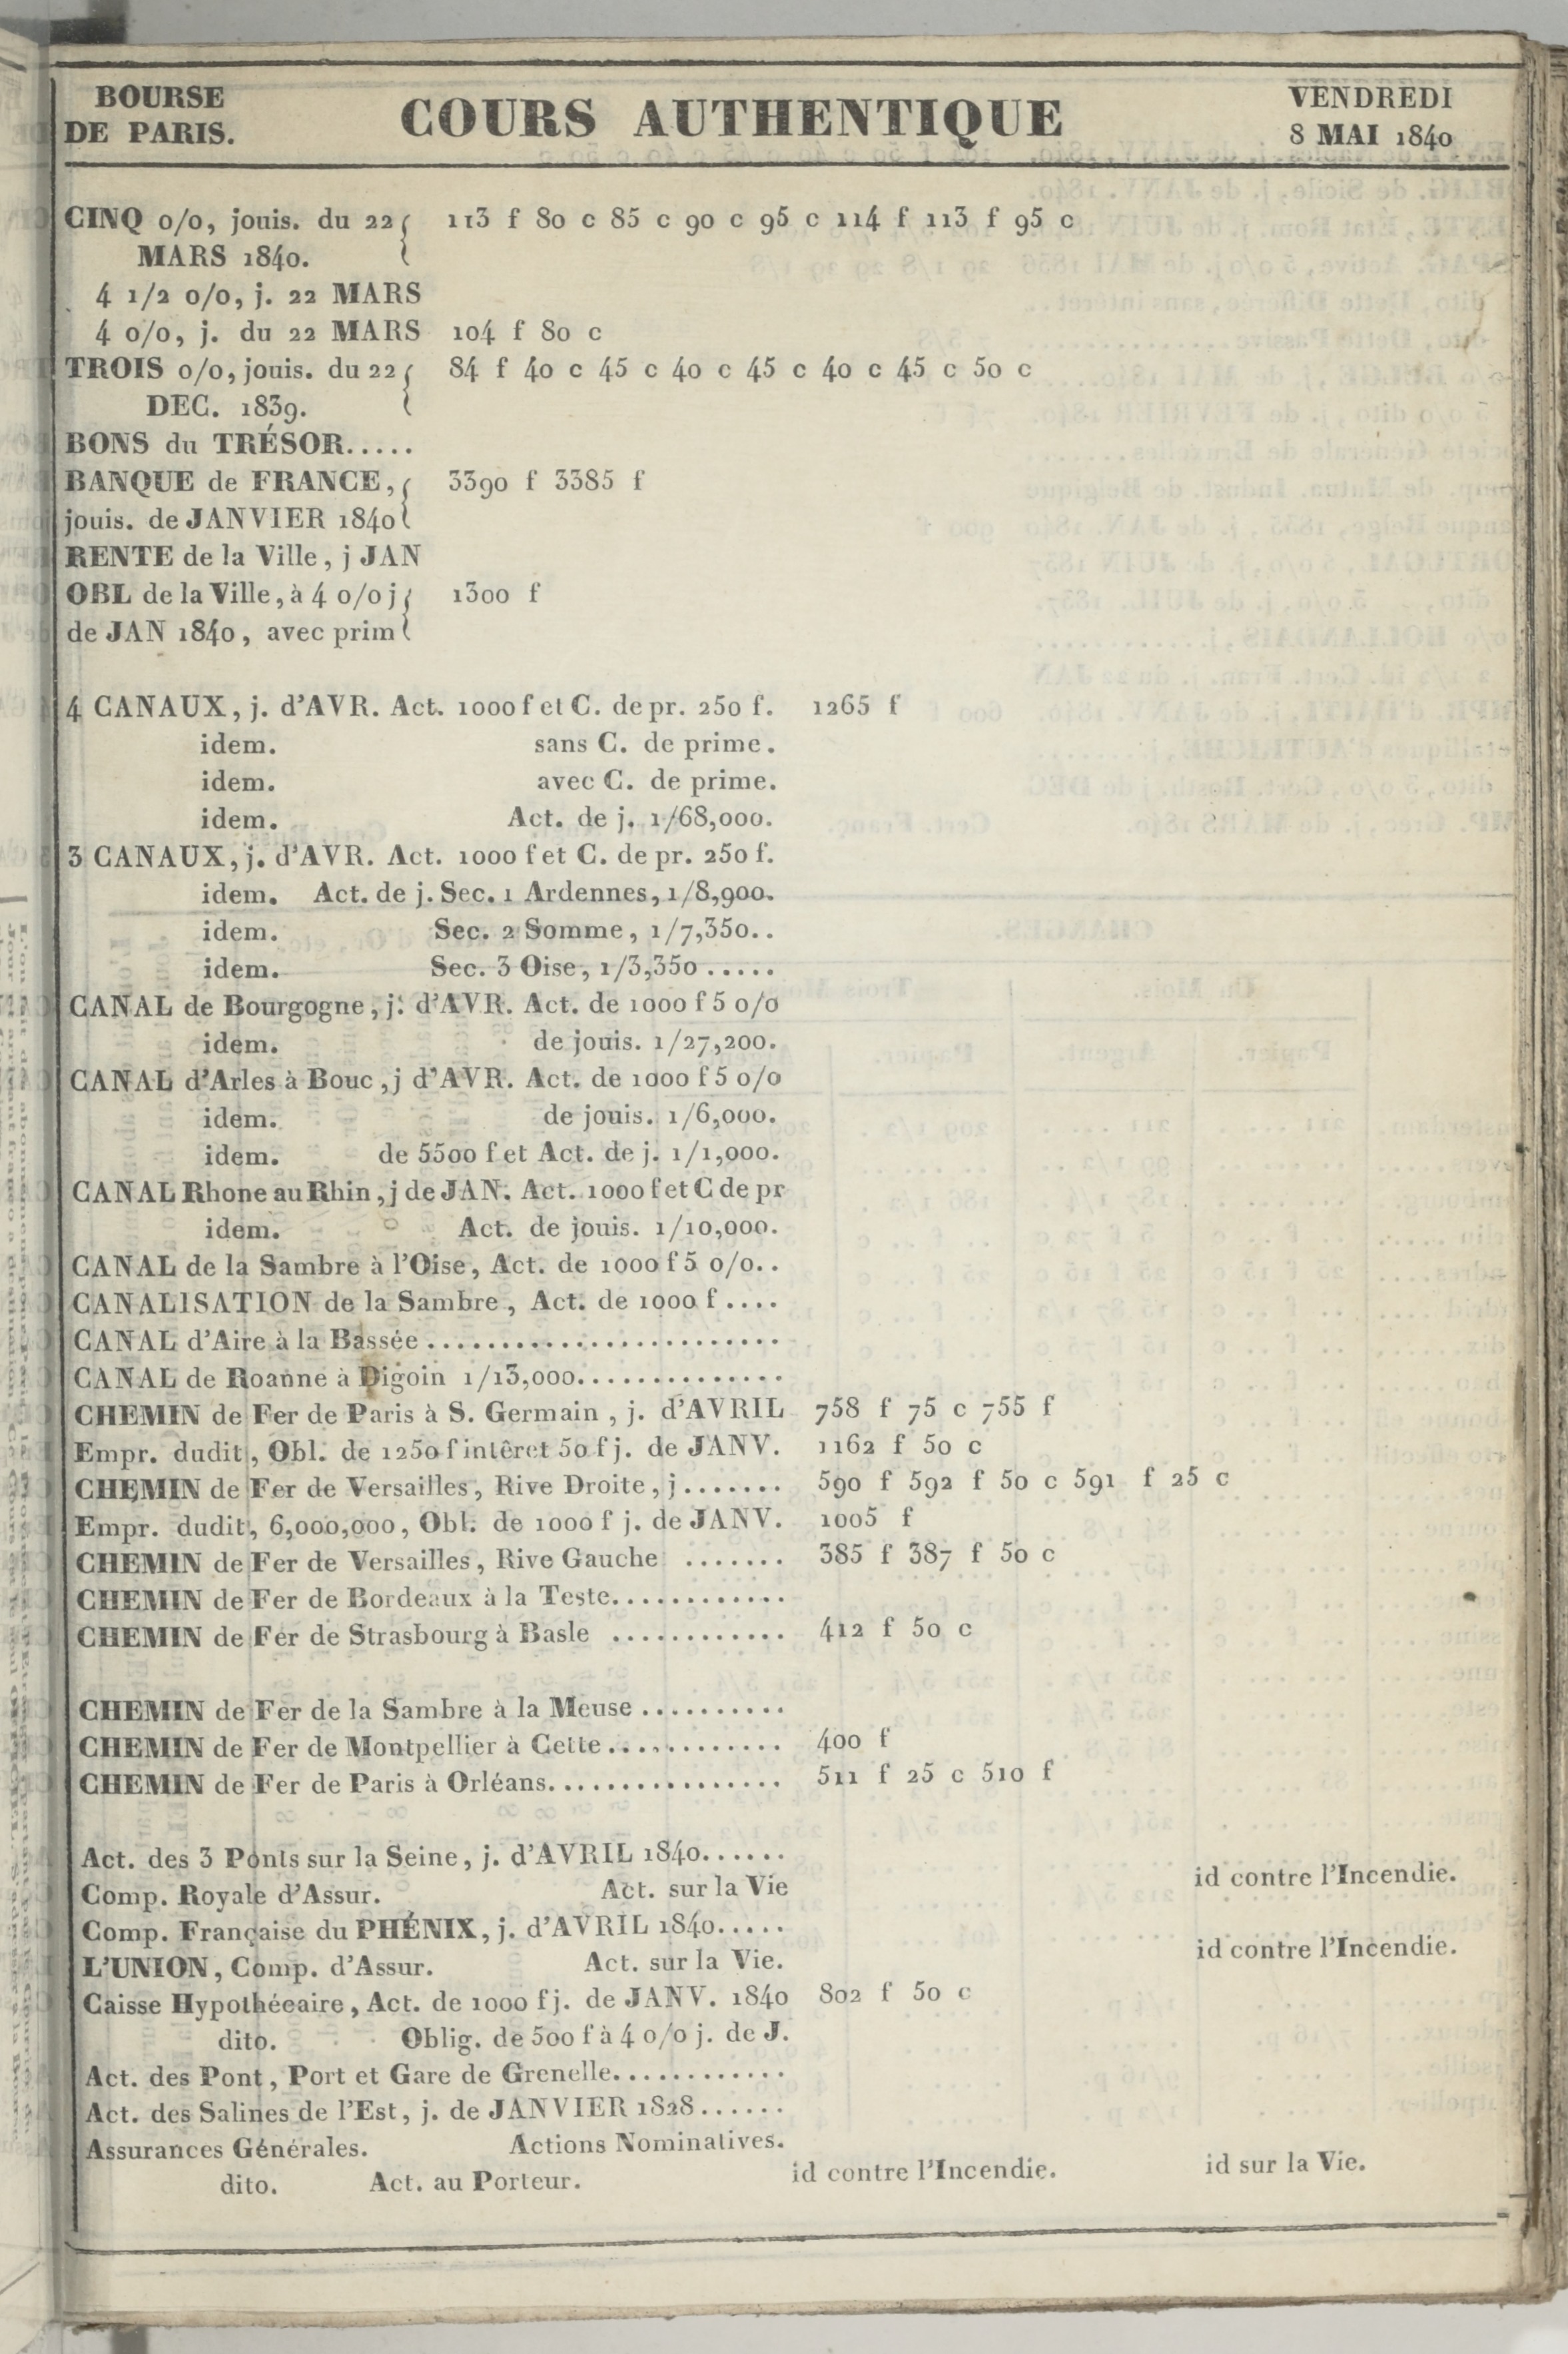 BOURSE DE PARIS.
COURS AUTHENTIQUE
VENDREDI 8 MAI 1840
CINQ 0/0, jouis. du 22 113 f 80 c 85 c 90 c 95 c 114 f 113 f 95 c
MARS 1840.
4 1/2 0/0, j. 22 MARS
4 0/0, j. du 22 MARS 104 f 80 c
TROIS 0/0, jouis. du 22 84 f 40 c 45 c 40 c 45 c 40 c 45 c 50 c
DEC. 1839.
BONS du TRÉSOR.....
BANQUE de FRANCE, 3390 f 3385 f
jouis. de JANVIER 1840
RENTE de la Ville, j JAN
OBL de la Ville, à 4 0/0 j 1300 f
de JAN 1840, avec prim
4 CANAUX, j. d'AVR. Act. 1000 f et C. de pr. 250 f. 1265 f
idem. sans C. de prime.
idem. avec C. de prime.
idem. Act. de j. 1/68,000.
3 CANAUX, j. d'AVR. Act. 1000 f et C. de pr. 250 f.
idem. Act. de j. Sec. 1 Ardennes, 1/8,900.
idem. Sec. 2 Somme, 1/7,350..
idem. Sec. 3 Oise, 1/3,350.....
CANAL de Bourgogne, j. d'AVR. Act. de 1000 f 5 0/0
idem. de jouis. 1/27,200.
CANAL d'Arles à Bouc, j d'AVR. Act. de 1000 f 5 0/0
idem. de jouis. 1/6,000.
idem. de 5500 f et Act. de j. 1/1,000.
CANAL Rhone au Rhin, j de JAN. Act. 1000 f et C de pr
idem. Act. de jouis. 1/10,000.
CANAL de la Sambre à l'Oise, Act. de 1000 f 5 0/0..
CANALISATION de la Sambre, Act. de 1000 f....
CANAL d'Aire à la Bassée........................
CANAL de Roanne à Digoin 1/13,000..............
CHEMIN de Fer de Paris à S. Germain, j. d'AVRIL 758 f 75 c 755 f
Empr. dudit, Obl. de 1250 f intêret 50 f j. de JANV. 1162 f 50 c
CHEMIN de Fer de Versailles, Rive Droite, j....... 590 f 592 f 50 c 591 f 25 c
Empr. dudit, 6,000,000, Obl. de 1000 f j. de JANV. 1005 f
CHEMIN de Fer de Versailles, Rive Gauche ....... 385 f 387 f 50 c
CHEMIN de Fer de Bordeaux à la Teste............
CHEMIN de Fer de Strasbourg à Basle ............ 412 f 50 c
CHEMIN de Fer de la Sambre à la Meuse..........
CHEMIN de Fer de Montpellier à Cette............ 400 f
CHEMIN de Fer de Paris à Orléans................ 511 f 25 c 510 f
Act. des 3 Ponts sur la Seine, j. d'AVRIL 1840......
Comp. Royale d'Assur. Act. sur la Vie id contre l'Incendie.
Comp. Française du PHÉNIX, j. d'AVRIL 1840.....
L'UNION, Comp. d'Assur. Act. sur la Vie. id contre l'Incendie.
Caisse Hypothéeaire, Act. de 1000 f j. de JANV. 1840 802 f 50 c
dito. Oblig. de 500 f à 4 0/0 j. de J.
Act. des Pont, Port et Gare de Grenelle............
Act. des Salines de l'Est, j. de JANVIER 1828......
Assurances Générales. Actions Nominatives.
dito. Act. au Porteur. id contre l'Incendie. id sur la Vie.